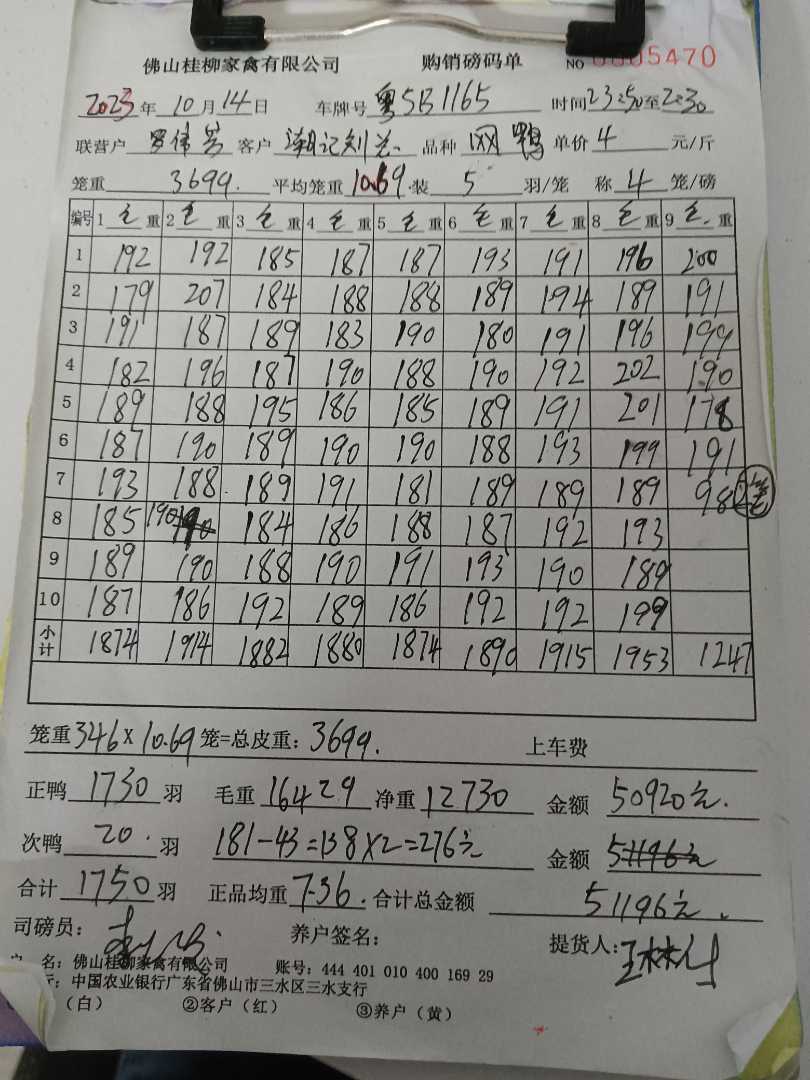 佛山桂柳家禽有限公司 购销磅码单 NO 0005470
2023年10月14日 车牌号 粤SB1165 时间23:50至2:30
联营户 客户 品种 鸭 单价 4 元/斤
笼重 3699. 平均笼重 10.69 装 5 羽/笼 称 4 笼/磅
编号 1 毛 重 2 毛 重 3 毛 重 4 毛 重 5 毛 重 6 毛 重 7 毛 重 8 毛 重 9 毛 重
1 192 192 185 187 187 193 191 196 200
2 179 207 184 188 188 189 194 189 191
3 191 187 189 183 190 180 191 196 199
4 182 196 187 190 188 190 192 202 190
5 189 188 195 186 185 189 191 201 178
6 187 190 189 190 190 188 193 199 191
7 193 188 189 191 181 189 189 189 98
8 185 190 184 186 188 187 192 193
9 189 190 188 190 191 193 190 189
10 187 186 192 189 186 192 192 199
小计 1874 1914 1882 1880 1874 1890 1915 1953 1247
笼重 346 X 10.69 笼=总皮重: 3699. 上车费
正鸭 1730 羽 毛重 16429 净重 12730 金额 50920元.
次鸭 20. 羽 181-43=138X2=276元 金额 51196元
合计 1750 羽 正品均重 7.36. 合计总金额 51196元.
司磅员: 养户签名: 提货人:
户 名: 佛山桂柳家禽有限公司 账号: 444 401 010 400 169 29
行: 中国农业银行广东省佛山市三水区三水支行
(白) ②客户(红) ③养户(黄)